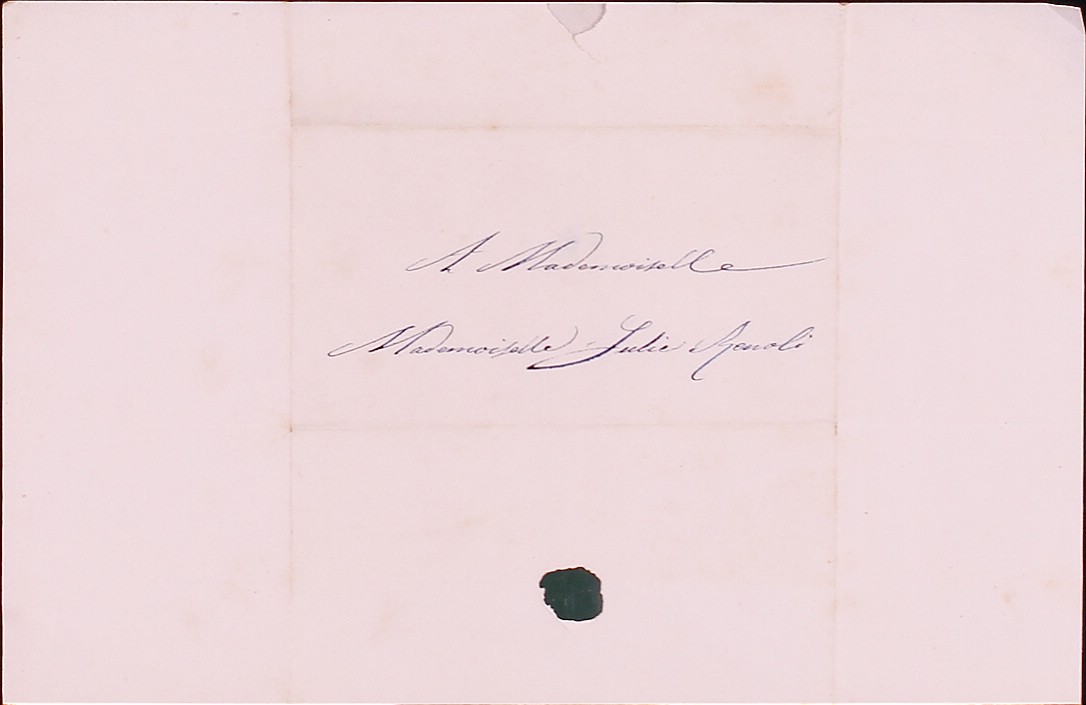 A Mademoiselle
Mademoiselle Julie Renoli